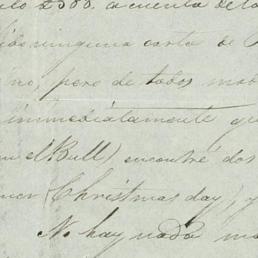 £500. a cuenta de la
ninguna carta de
no, pero de todos mod
immediatamente que
en el Bull) encontré dos
(Christmas day), y
No hay nada ma